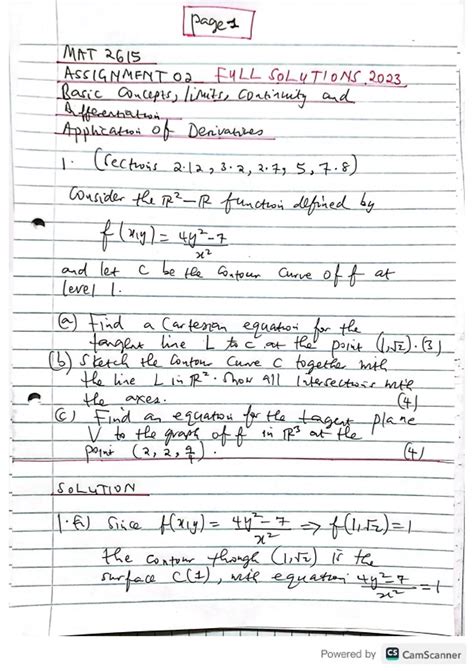 page 1
MAT 2615
ASSIGNMENT 02 FULL SOLUTIONS 2023
Basic Concepts, limits, Continuity and
Differentiation
Application of Derivatives
1. (Sections 2.12, 3.2, 2.7, 5, 7.8)
Consider the R² – R function defined by
f(x,y) = 4y² – 7 / x²
and let C be the Contour Curve of f at
level 1.
(a) Find a Cartesian equation for the
tangent line L to C at the point (1,√2). (3)
(b) Sketch the Contour Curve C together with
the line L in R². Show all Intersections with
the axes. (4)
(c) Find an equation for the tagent plane
V to the graph of f in R³ at the
point (2, 2, 9/4). (4)
SOLUTION
1. (a) Since f(x,y) = 4y² – 7 / x² ⇒ f(1,√2) = 1
the contour though (1,√2) is the
surface C(1), with equation 4y² – 7 / x² = 1
Powered by CS CamScanner